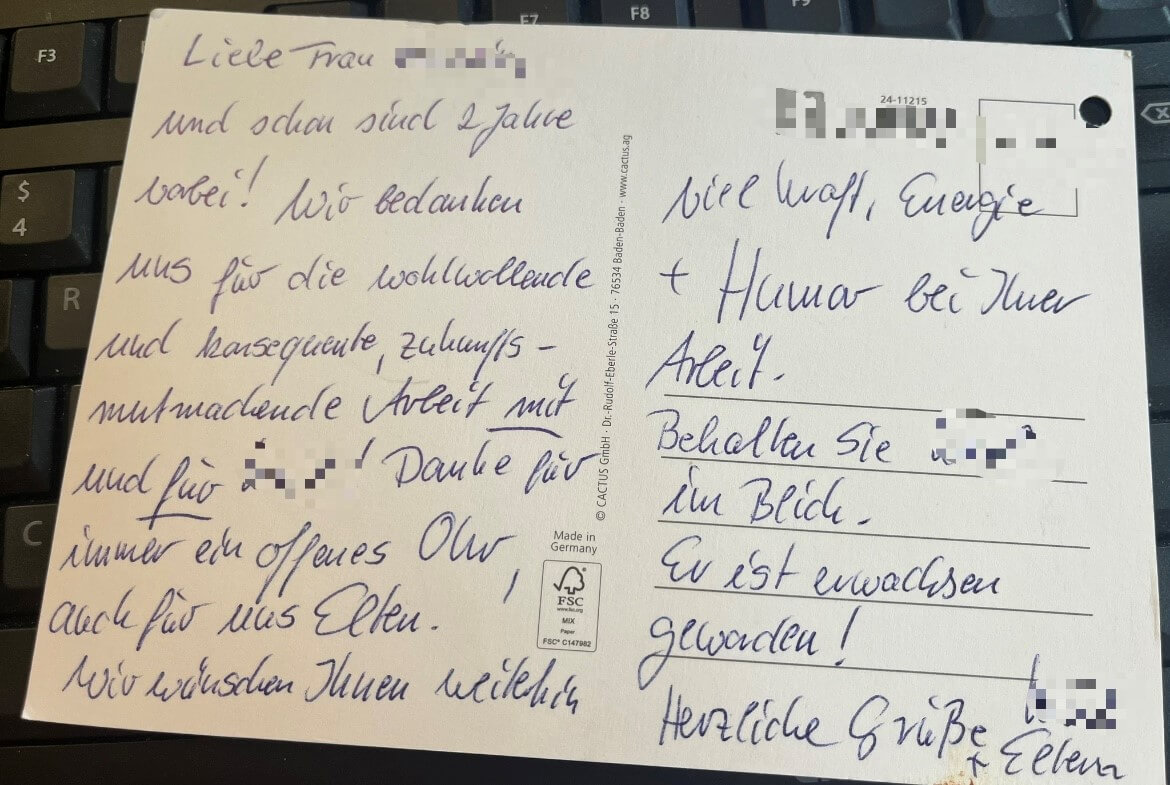 Liebe Frau
und schon sind 2 Jahre
vorbei! Wir bedanken
uns für die wohlwollende
und konsequente, zukunfts-
mutmachende Arbeit mit
und für ! Danke für
immer ein offenes Ohr,
auch für uns Eltern.
Wir wünschen Ihnen weiterhin
Viel Kraft, Energie
+ Humor bei Ihrer
Arbeit.
Behalten Sie
im Blick.
Er ist erwachsen
geworden!
Herzliche Grüße
+ Eltern
24-11215
© CACTUS GmbH · Dr.-Rudolf-Eberle-Straße 15 · 76534 Baden-Baden · www.cactus.ag
Made in
Germany
FSC
www.fsc.org
MIX
Paper
FSC® C147982
F3
F7
F8
F9
$
4
R
C